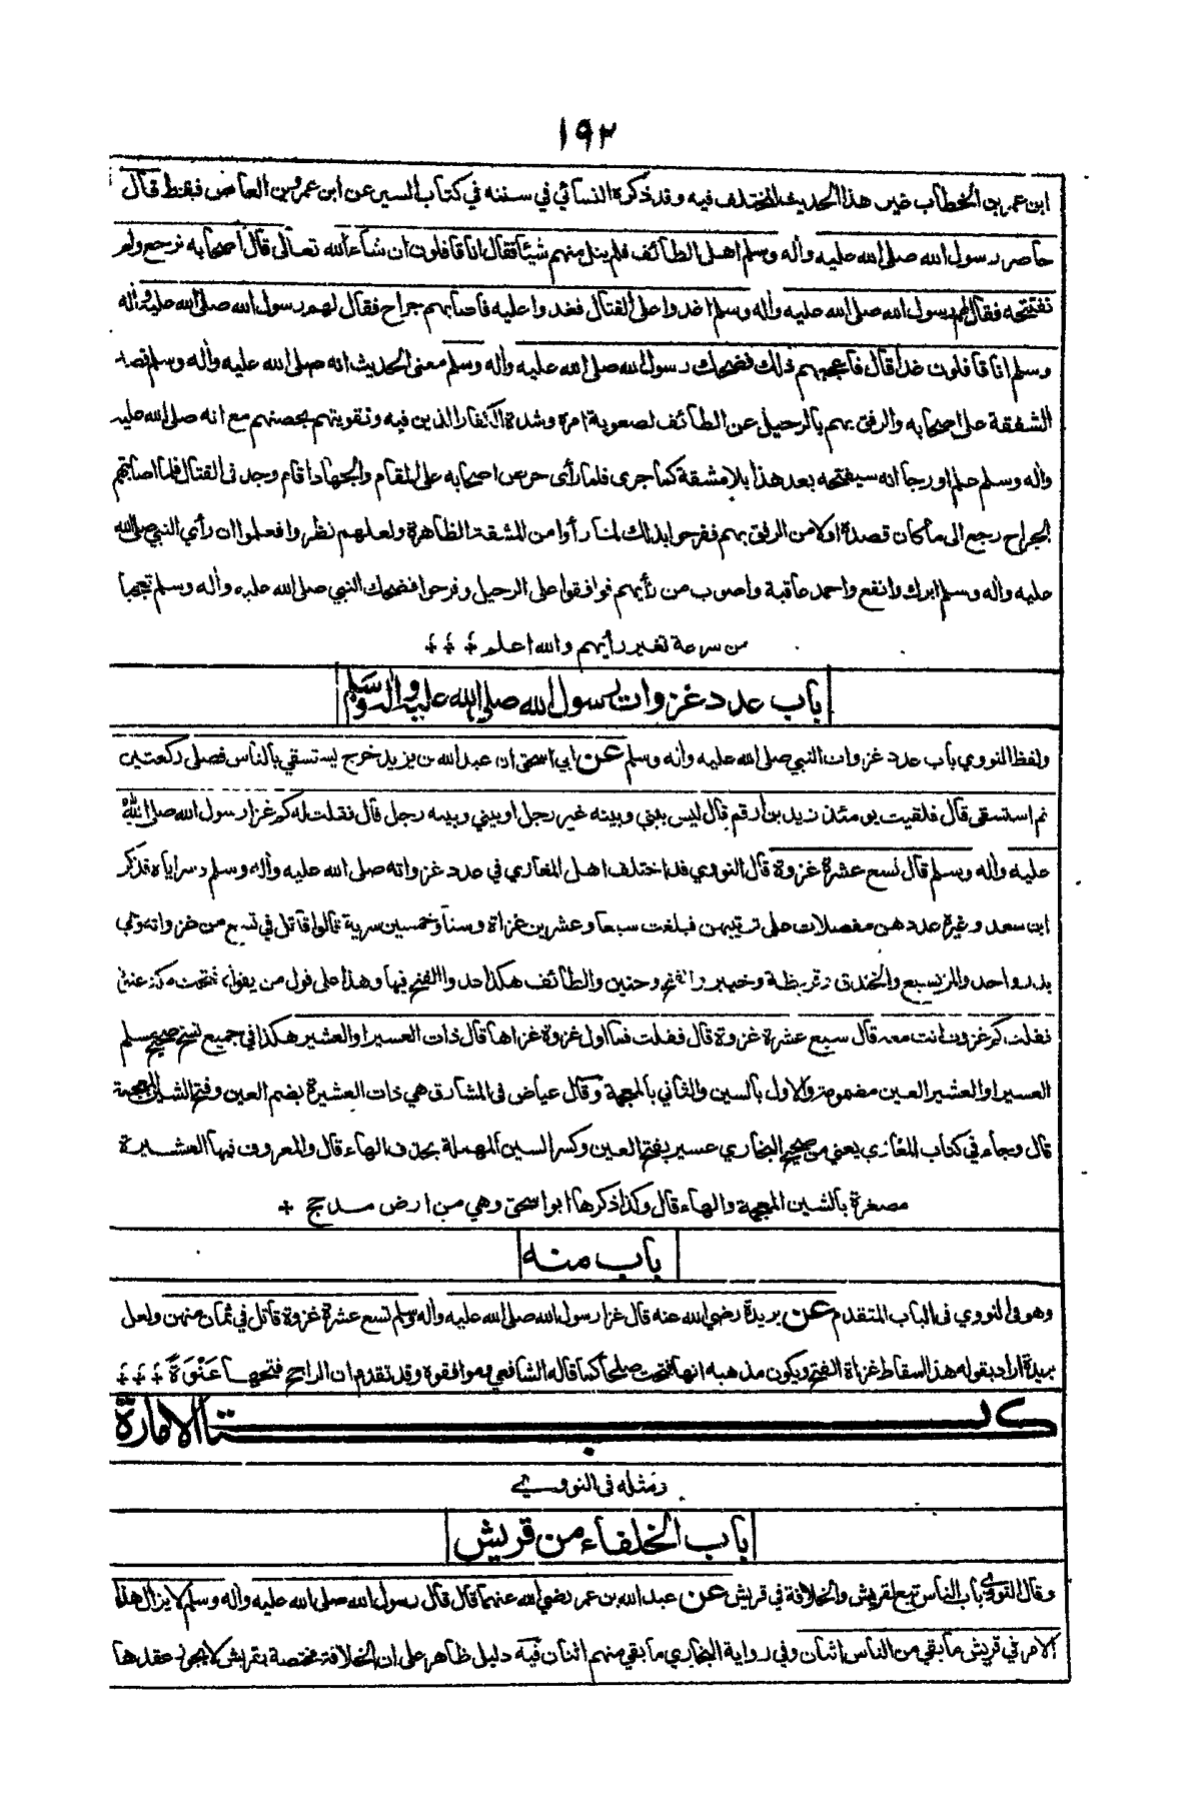 ١٩٢
ابن عمر بن الخطاب غير هذا الحديث المختلف فيه وقد ذكره النسائي في سننه في كتاب السير عن ابن عمرو بن العاص فقط قال
حاصر رسول الله صلى الله عليه واله وسلم اهل الطائف فلم ينل منهم شيئا فقال انا قافلون ان شاء الله تعالى قال اصحابه نرجع ولم
نفتتحه فقال لهم رسول الله صلى الله عليه واله وسلم اغدوا على القتال فغدوا عليه فاصابهم جراح فقال لهم رسول الله صلى الله عليه واله
وسلم انا قافلون غدا قال فاعجبهم ذلك فضحك رسول الله صلى الله عليه واله وسلم معنى الحديث انه صلى الله عليه واله وسلم قصد
الشفقة على اصحابه والرفق بهم بالرحيل عن الطائف لصعوبة امره وشدة الكفار الذين فيه وتقويتهم بحصنهم مع انه صلى الله عليه
واله وسلم علم او رجا انه سيفتحه بعد هذا بلا مشقة كما جرى فلما رأى حرص اصحابه على المقام والجهاد اقام وجد في القتال فلما اصابتهم
الجراح رجع الى ما كان قصده اولا من الرفق بهم ففرحوا بذلك لما رأوا من المشقة الظاهرة ولعلهم نظروا فعلموا ان رأي النبي صلى الله
عليه واله وسلم ابرك وانفع واحمد عاقبة واصوب من رأيهم فوافقوا على الرحيل وفرحوا فضحك النبي صلى الله عليه واله وسلم تعجبا
من سرعة تغير رأيهم والله اعلم
باب عدد غزوات رسول الله صلى الله عليه واله وسلم
ولفظ النووي باب عدد غزوات النبي صلى الله عليه واله وسلم عن ابي اسحق ان عبد الله بن يزيد خرج يستسقي بالناس فصلى ركعتين
ثم استسقى قال فلقيت يومئذ زيد بن ارقم قال ليس بيني وبينه غير رجل او بيني وبينه رجل قال فقلت له كم غزا رسول الله صلى الله
عليه واله وسلم قال تسع عشرة غزوة قال النووي قد اختلف اهل المغازي في عدد غزواته صلى الله عليه واله وسلم وسراياه فذكر
ابن سعد وغيره عددهن مفصلات على ترتيبهن فبلغت سبعا وعشرين غزاة وستا وخمسين سرية قالوا قاتل في تسع من غزواته وهي
بدر واحد والمريسيع والخندق وقريظة وخيبر والفتح وحنين والطائف هكذا عدوا الفتح فيها وهذا على قول من يقول فتحت مكة عنوة
فقلت كم غزوت انت معه قال سبع عشرة غزوة قال فقلت فما اول غزوة غزاها قال ذات العسير او العشير هكذا في جميع نسخ صحيح مسلم
العسير او العشير العين مضمومة والاول بالسين والثاني بالمعجمة وقال عياض في المشارق هي ذات العشيرة بضم العين وفتح الشين المعجمة
قال وجاء في كتاب المغازي يعني من صحيح البخاري عسير بفتح العين وكسر السين المهملة بحذف الهاء قال والمعروف فيها العشيرة
مصغرة بالشين المعجمة والهاء قال وكذا ذكرها ابو اسحق وهي من ارض مدحج
باب منه
وهو في النووي في الباب المتقدم عن بريدة رضي الله عنه قال غزا رسول الله صلى الله عليه واله وسلم تسع عشرة غزوة قاتل في ثمان منهن ولعل
بريدة اراد بقوله هذا اسقاط غزاة الفتح ويكون مذهبه انها فتحت صلحا كما قاله الشافعي وموافقوه وقد تقدم ان الراجح فتحها عَنْوَةً
كتاب الامارة
ومثله في النووي
باب الخلفاء من قريش
وقال النووي باب الناس تبع لقريش والخلافة في قريش عن عبد الله بن عمر رضي الله عنهما قال قال رسول الله صلى الله عليه واله وسلم لا يزال هذا
الامر في قريش ما بقي من الناس اثنان وفي رواية البخاري ما بقي منهم اثنان فيه دليل ظاهر على ان الخلافة مختصة بقريش لا يجوز عقدها